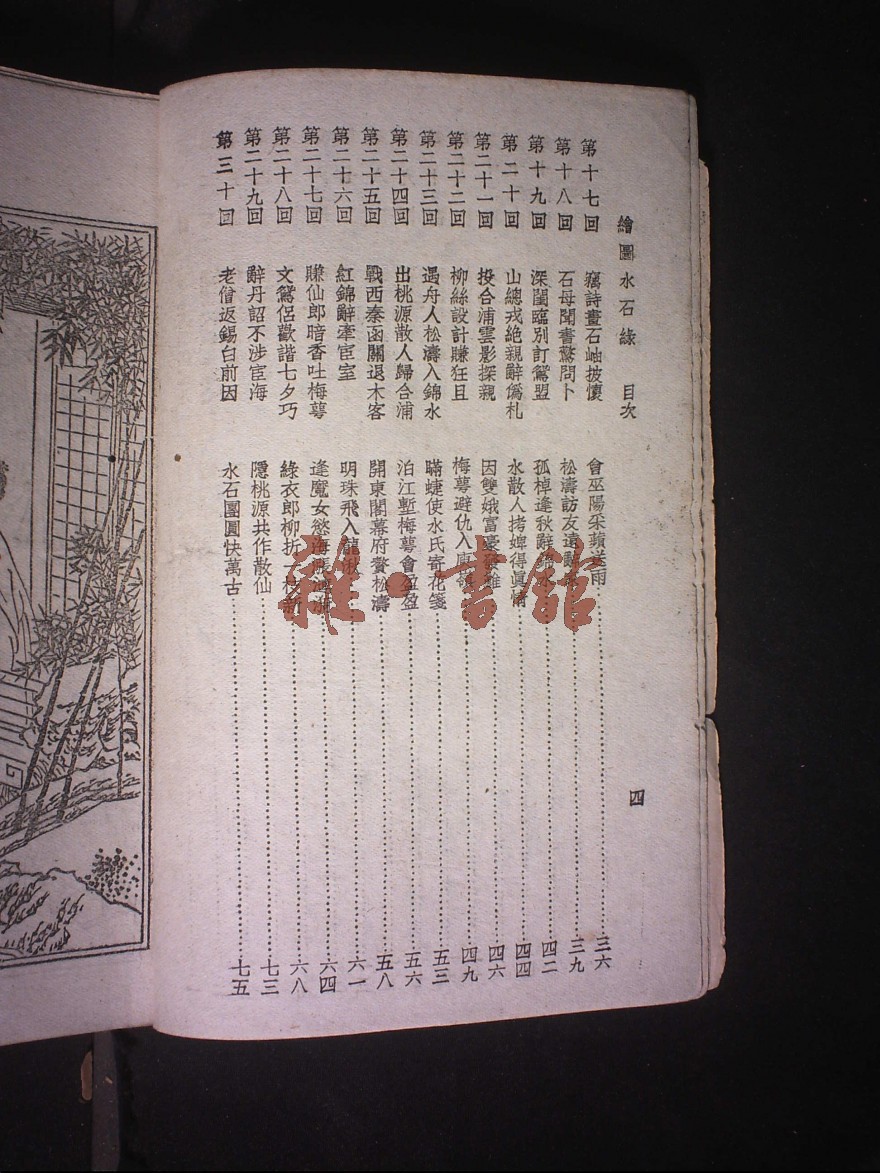 繪圖水石緣 目次 四
第十七回 寫詩畫石岫披懷 會巫陽采蘋送雨 三六
第十八回 石母聞書驚問卜 松濤訪友遠 三九
第十九回 深閨臨別訂鴛盟 孤棹逢秋辭錦水 四二
第二十回 山總戎絶親辭僞札 水散人拷婢得眞情 四四
第二十一回 投合浦雲影探親 因雙娥富豪 四六
第二十二回 柳絲設計賺狂且 梅萼避仇入庾嶺 四九
第二十三回 遇舟人松濤入錦水 瞞蜨使水氏寄花箋 五三
第二十四回 出桃源散人歸合浦 泊江塹梅萼會盈盈 五六
第二十五回 戰西秦函關退木客 開東閣幕府贅松濤 五八
第二十六回 紅錦辭牽宦室 明珠飛入龍湫 六一
第二十七回 賺仙郎暗香吐梅萼 逢魔女慾海 六四
第二十八回 文鴛侶歡諧七夕巧 綠衣郎柳折一枝新 六八
第二十九回 辭丹詔不涉宦海 隱桃源共作散仙 七三
第三十回 老僧返錫白前因 水石團圓快萬古 七五
雜·書館